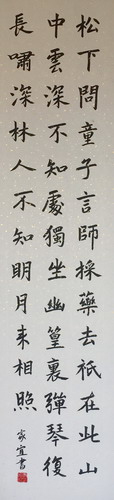 松下問童子言師採藥去祇在此山
中雲深不知處獨坐幽篁裏彈琴復
長嘯深林人不知明月来相照
家宜書